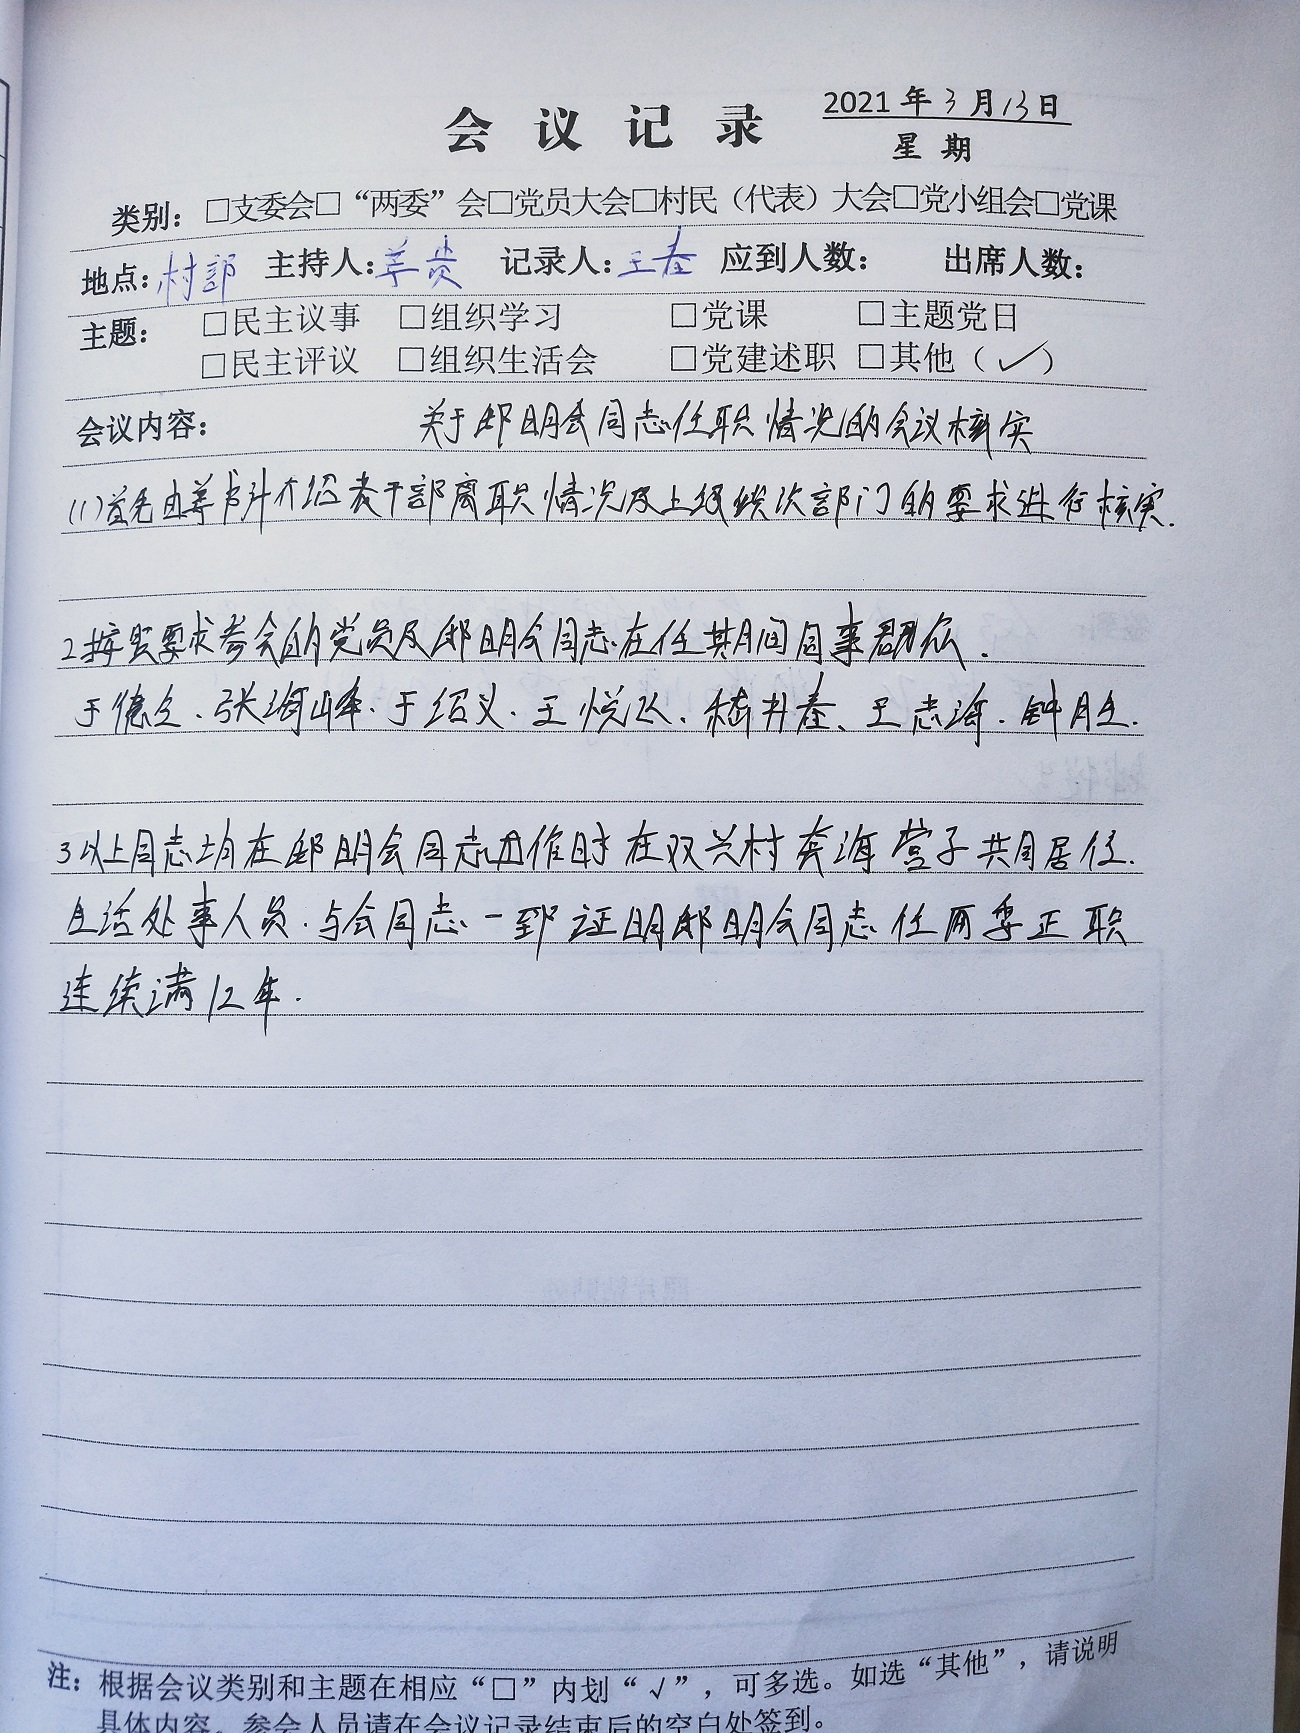 会议记录
2021年3月13日
星期
类别：□支委会□“两委”会□党员大会□村民（代表）大会□党小组会□党课
地点：村部 主持人： 记录人： 应到人数： 出席人数：
主题： □民主议事 □组织学习 □党课 □主题党日
□民主评议 □组织生活会 □党建述职 □其他（✓）
会议内容： 关于邸明会同志任职情况的会议核实
(1)首先由 书计介绍 干部离职情况及上级 部门的要求进行核实.
2按照要求参会的党员及邸明会同志在任其间同事群众.
于德 、张海峰、于绍义、王悦 、 井 、王志海、钟月 .
3以上同志均在邸明会同志 作时在双兴村 海 子共同居住.
生活处事人员.与会同志一致证明邸明会同志任两委正职
连续满12年.
注：根据会议类别和主题在相应“□”内划“√”，可多选。如选“其他”，请说明
具体内容。参会人员请在会议记录结束后的空白处签到。